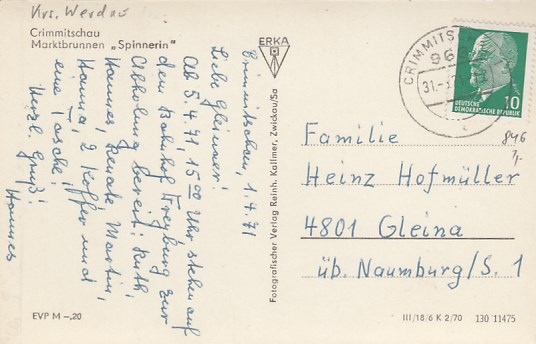 Krs. Werdau
Crimmitschau
Marktbrunnen „Spinnerin“
Crimmitschau, 1.4.71
Liebe Gleinaer!
Ab 5.4.71 15⁰⁰ Uhr stehen auf
dem Bahnhof Freyburg zur
Abholung bereit: Ruth,
Hannes, Renate, Martin,
Hanna, 2 Koffer und
eine Tasche!
Herzl. Gruß!
Hannes
EVP M –,20
ERKA
Fotografischer Verlag Reinh. Kallmer, Zwickau/Sa
CRIMMITS
96
31.-3.
DEUTSCHE
DEMOKRATISCHE REPUBLIK
10
846
Familie
Heinz Hofmüller
4801 Gleina
üb. Naumburg/S. 1
III/18/6 K 2/70 130 11475